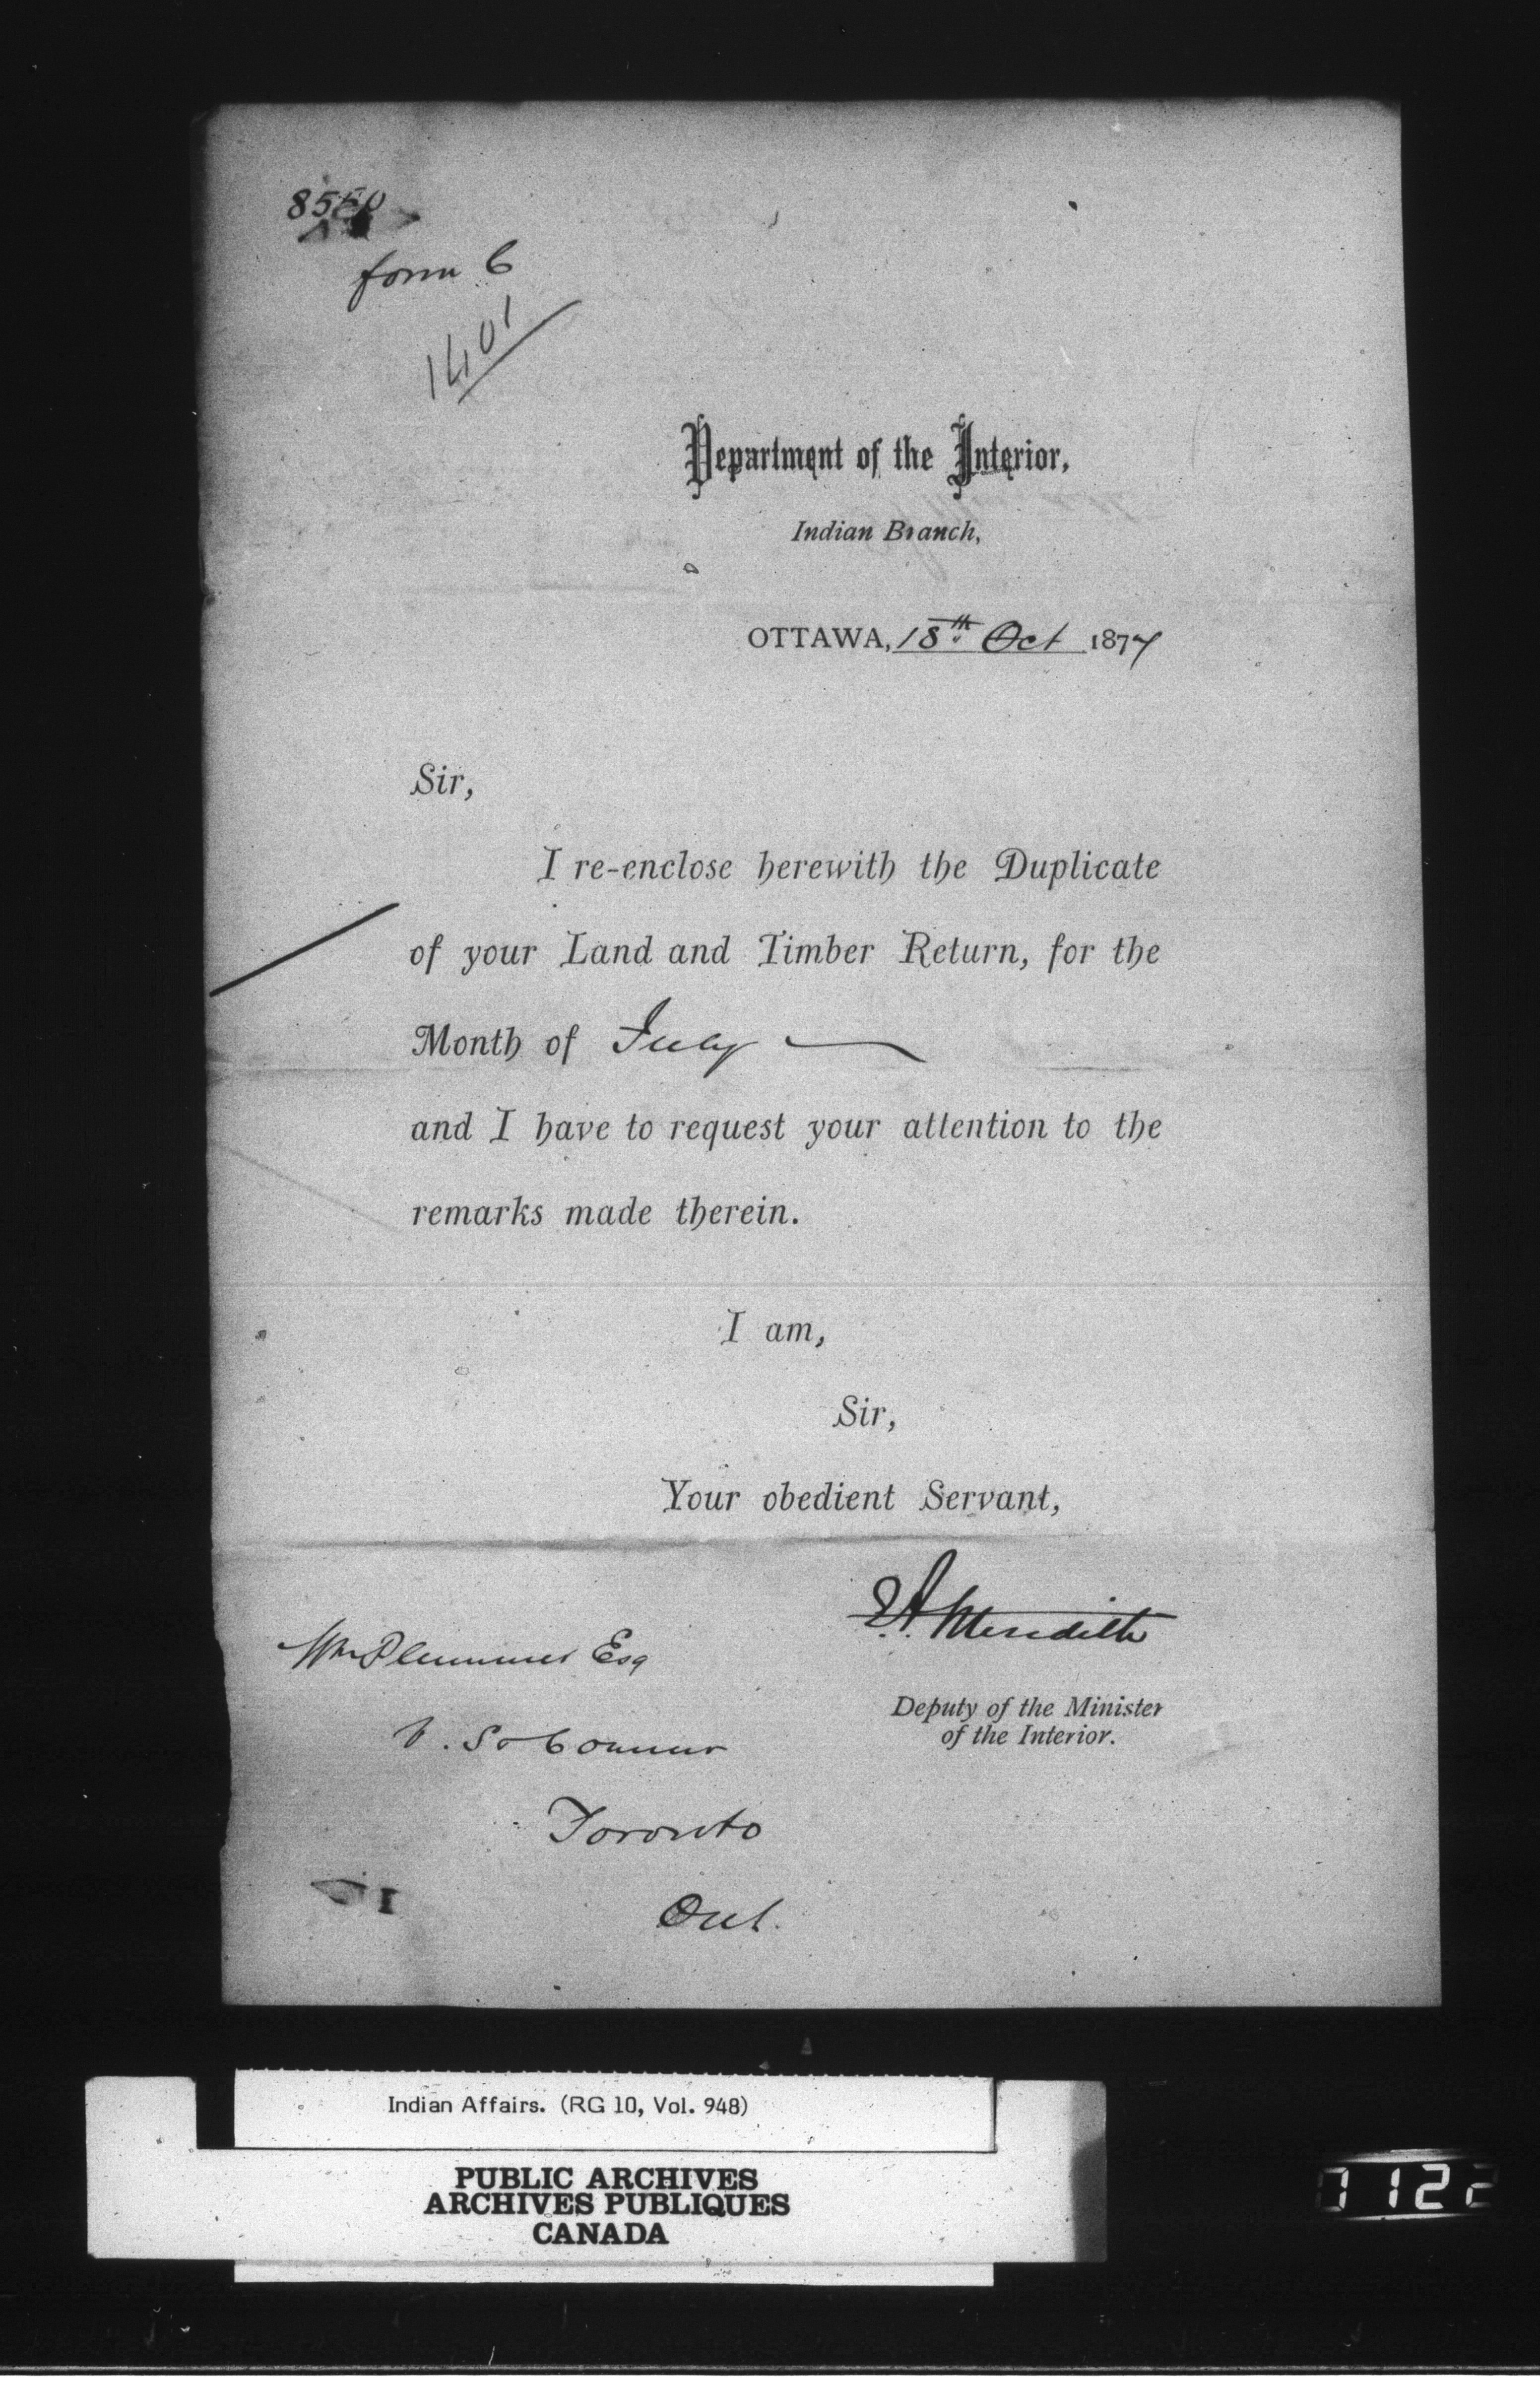 form 6
1401
Department of the Interior,
Indian Branch,
OTTAWA, 18th Oct 1877
Sir,
I re-enclose herewith the Duplicate
of your Land and Timber Return, for the
Month of July
and I have to request your attention to the
remarks made therein.
I am,
Sir,
Your obedient Servant,
E.A. Meredith
Deputy of the Minister
of the Interior.
Wm Plummer Esq
Toronto
Ont.
Indian Affairs. (RG 10, Vol. 948)
PUBLIC ARCHIVES
ARCHIVES PUBLIQUES
CANADA